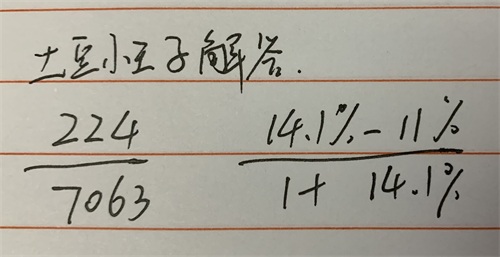 土豆小王子解答.
224/7063 (14.1%-11%)/(1+14.1%)